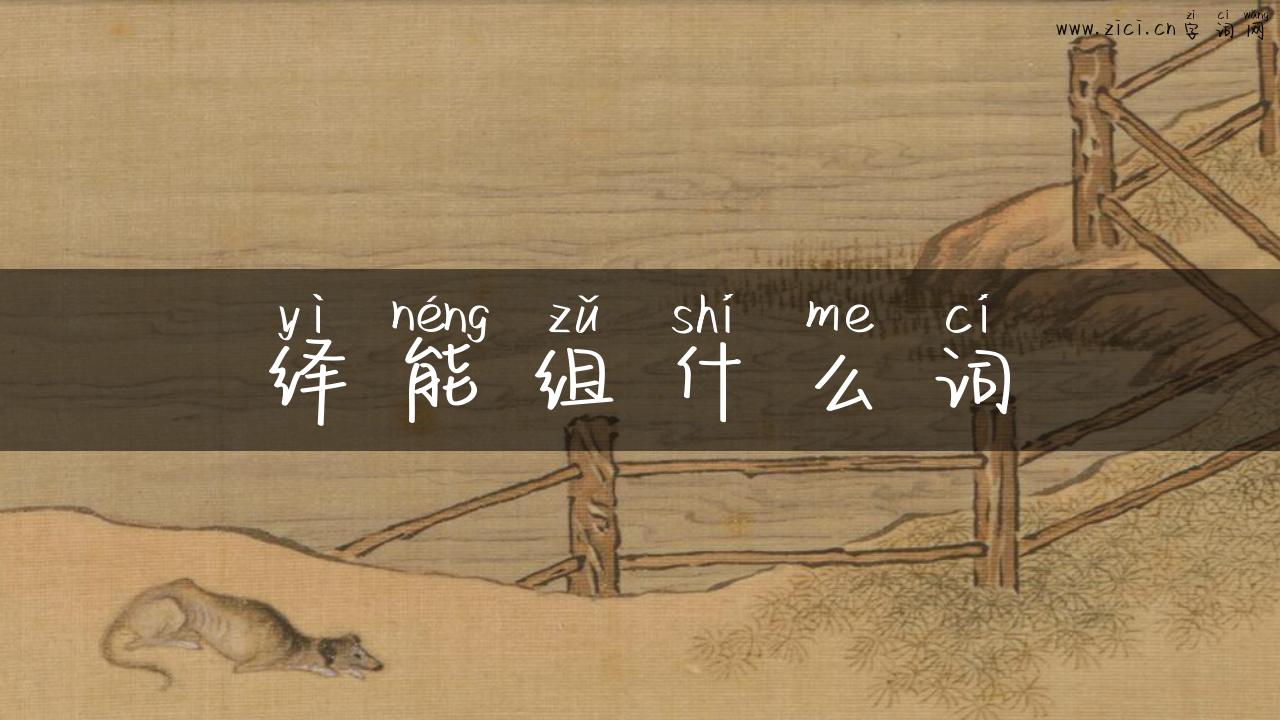 zì cí wǎng
www.zici.cn 字词网
yì néng zǔ shí me cí
绎能组什么词